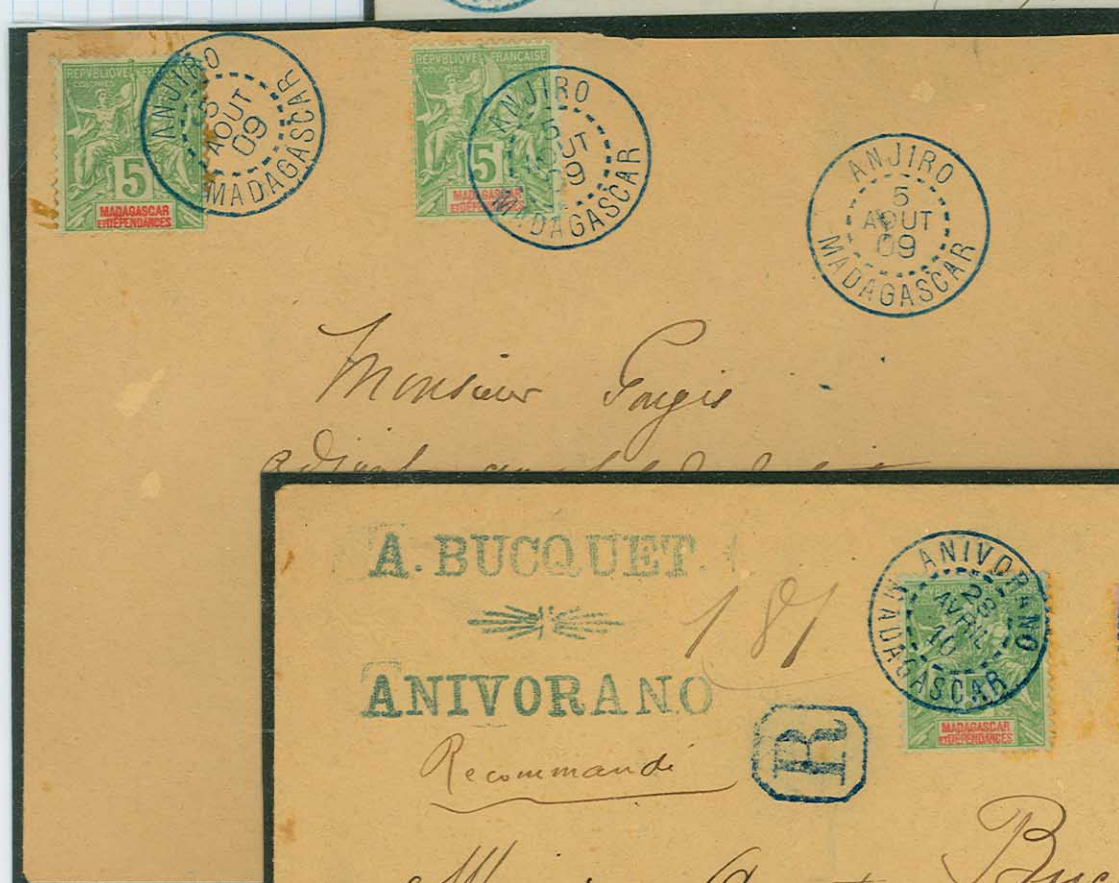 REPVBLIQVE FRANÇAISE
COLONIES POSTES
5
MADAGASCAR
ET DÉPENDANCES
ANJIRO
5
AOUT
09
MADAGASCAR
REPVBLIQVE FRANÇAISE
5
MADAGASCAR
ET DÉPENDANCES
ANJIRO
5
AOUT
09
MADAGASCAR
ANJIRO
5
AOUT
09
MADAGASCAR
Monsieur
A. BUCQUET.
181
ANIVORANO
Recommandé
R
ANIVORANO
28
AVRIL
10
MADAGASCAR
MADAGASCAR
ET DÉPENDANCES